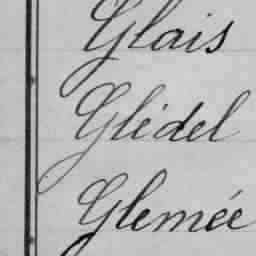 Glais
Glédel
Glemée